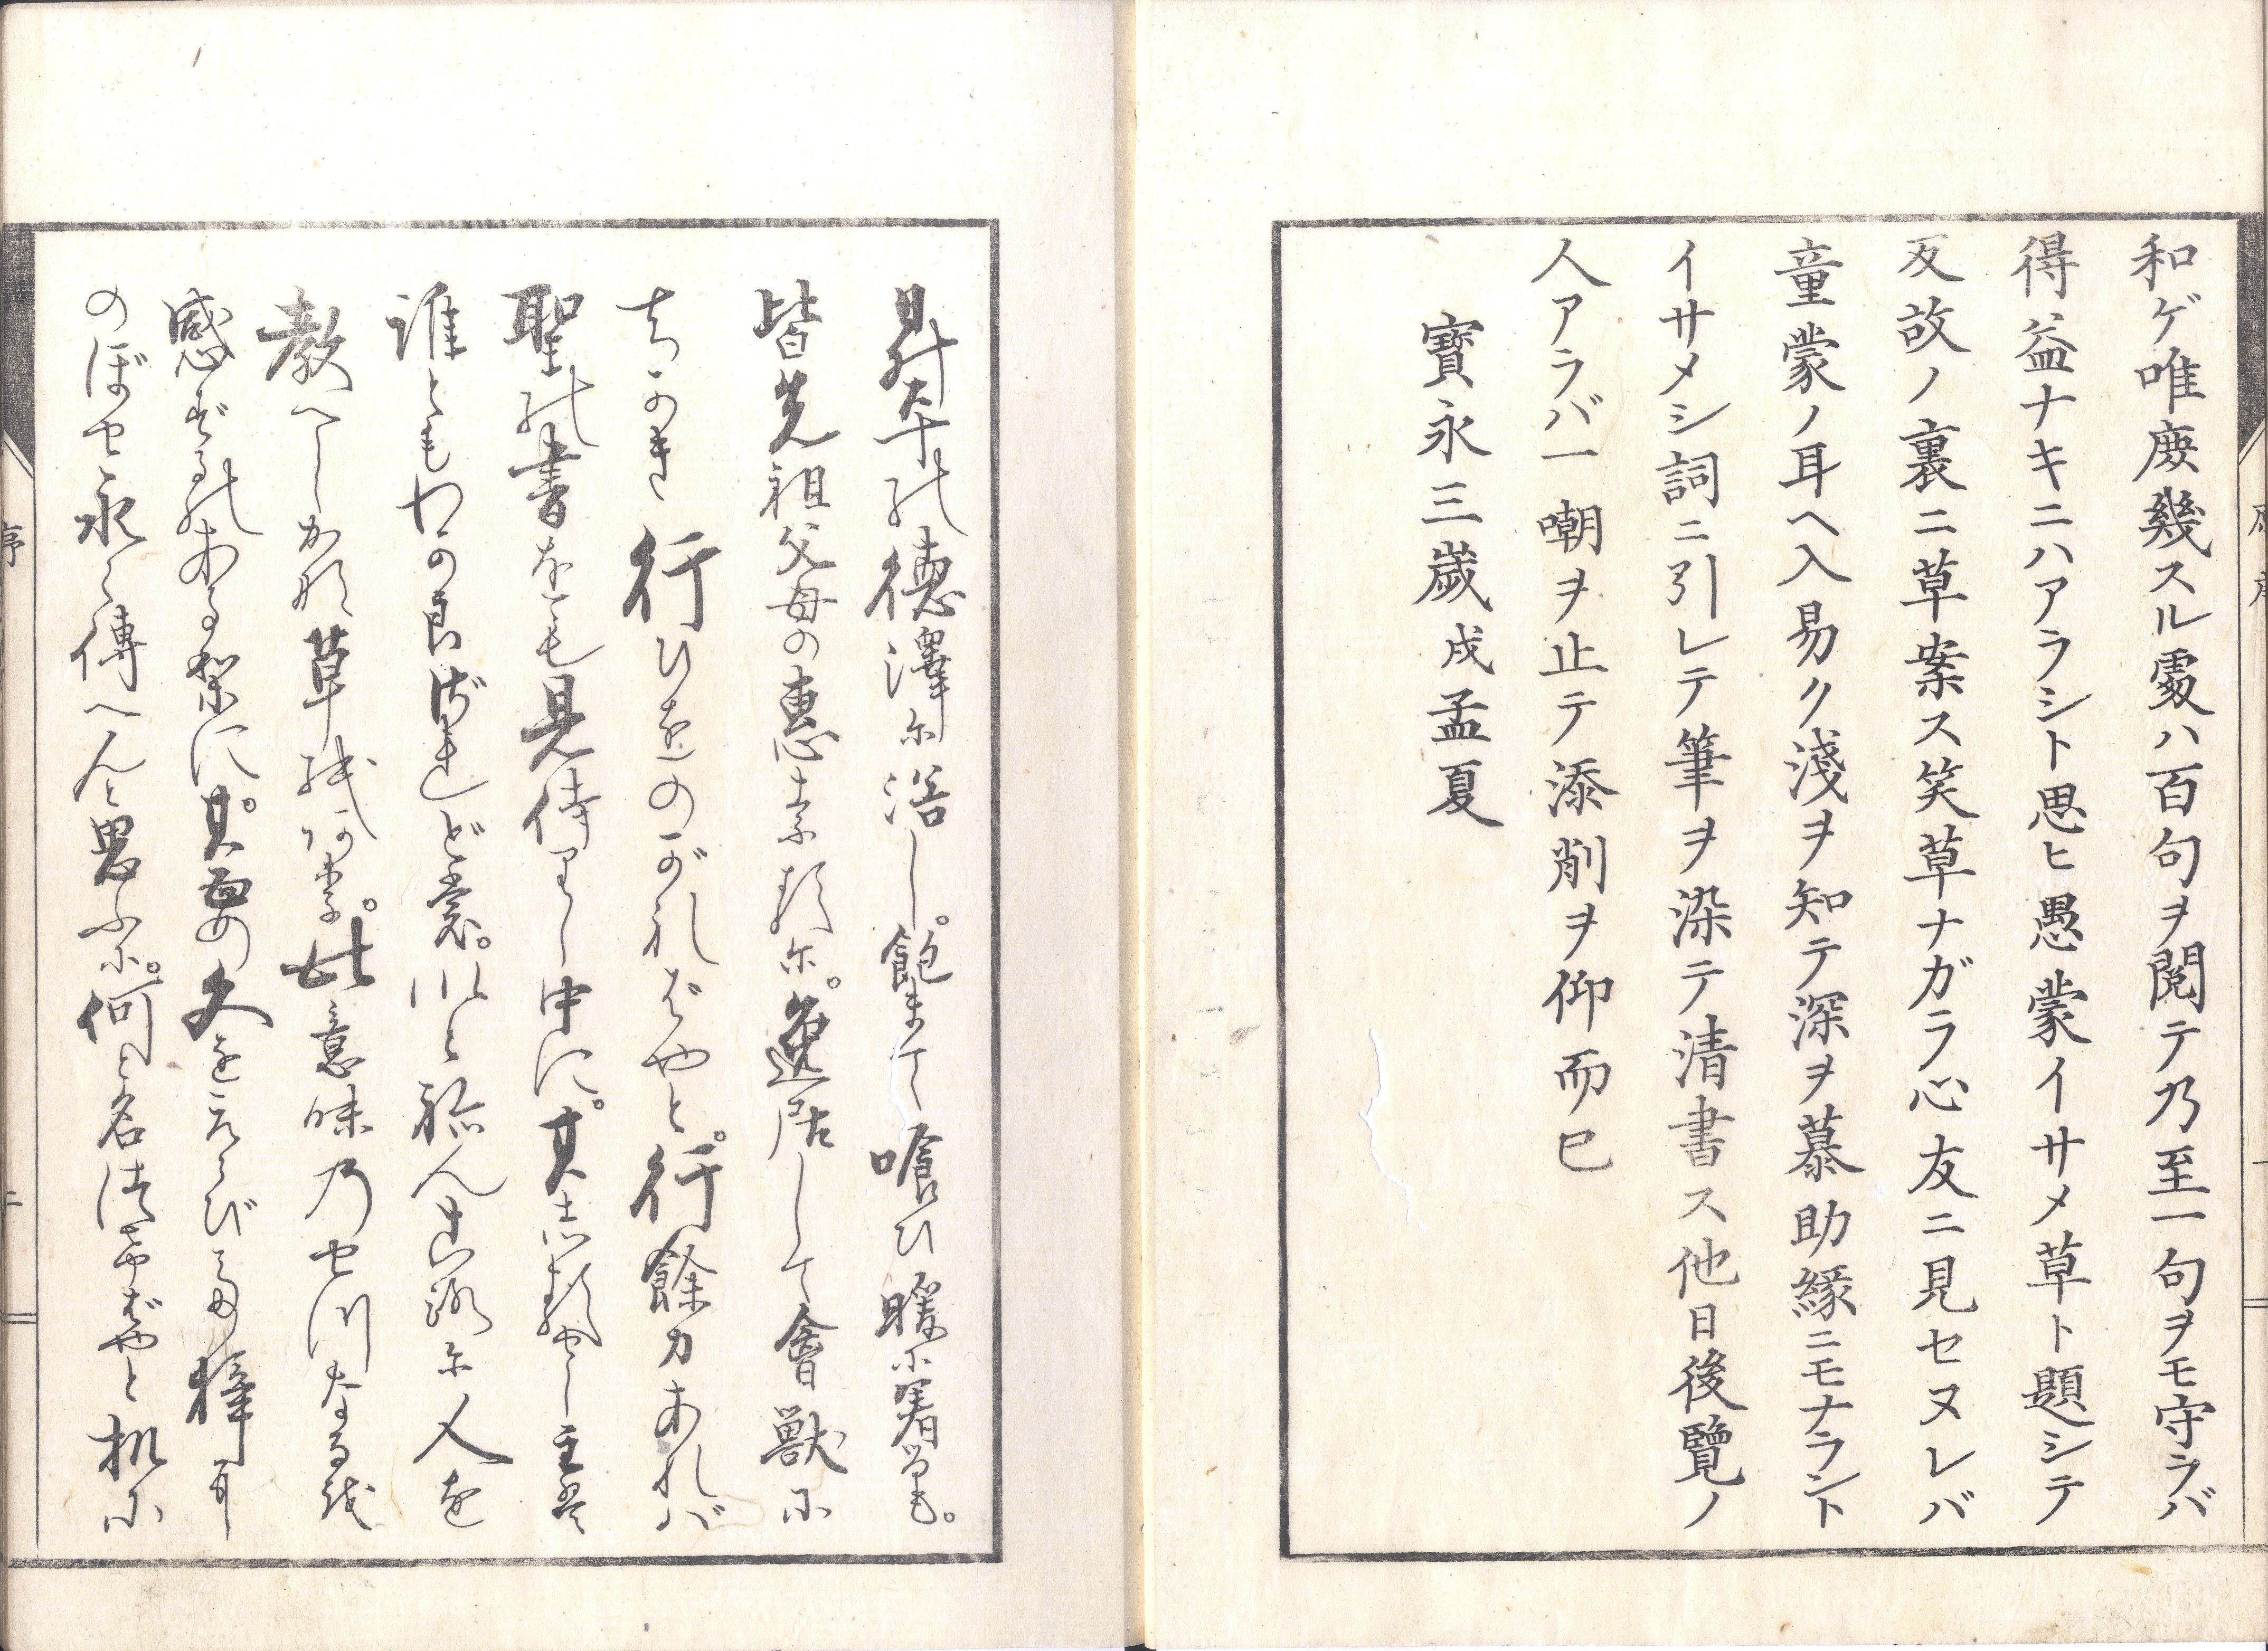 和ゲ唯庶幾スル處ハ百句ヲ閲テ乃至一句ヲモ守ラバ
得益ナキニハアラシト思ヒ愚蒙イサメ草ト題シテ
反故ノ裏ニ草案ス笑草ナガラ心友ニ見セヌレバ
童蒙ノ耳ヘ入易ク淺ヲ知テ深ヲ慕助縁ニモナラント
イサメシ詞ニ引レテ筆ヲ染テ清書ス他日後覽ノ
人アラバ一嘲ヲ止テ添削ヲ仰而已
寶永三歳戌孟夏
徳澤に浴し。飽まて喰ひ暖に着るも。
皆先祖父母の惠なるに。逸居して禽獣に
ちかき行ひをのがればやと。行餘力あれバ
聖の書をも見侍りし中に。其
誰ともわかざれど。人を
教へし草。此意味乃せつなる
感ずるのあまりに。其をえらび
のぼせ永く傳へんと思ふに。何と名付ばやと机に
序
二